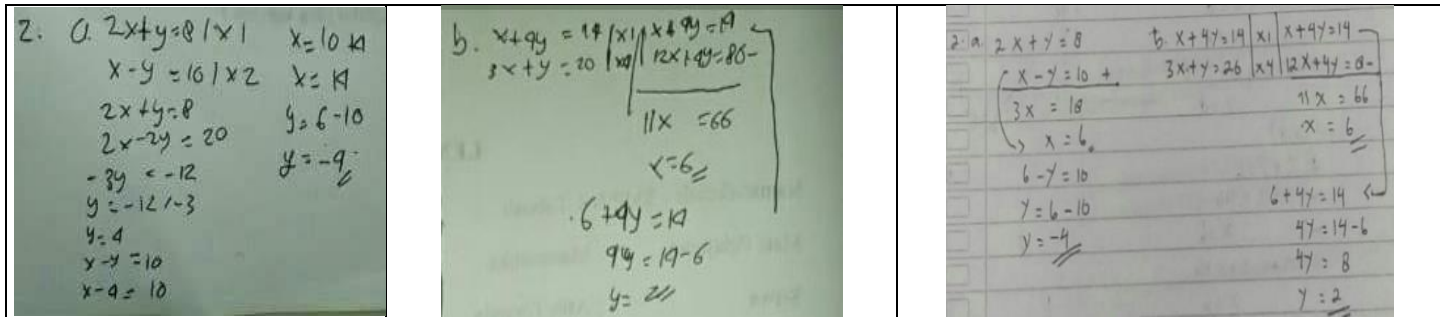 2. a. 2x+y=8 | x1
x-y=10 | x2
2x+y=8
2x-2y=20
-3y < -12
y=-12/-3
y=4
x-y=10
x-4=10
x=10+4
x=14
y=6-10
y=-4
b. x+4y=14 |x1| x+4y=14
3x+y=20 |x4| 12x+4y=80-
11x =66
x=6
6+4y=14
4y=14-6
y=2
2. a. 2x+y=8
x-y=10 +
3x =18
x=6
6-y=10
y=6-10
y=-4
b. x+4y=14 |x1| x+4y=14
3x+y=26 |x4| 12x+4y=8-
11x=66
x=6
6+4y=14
4y=14-6
4y=8
y=2